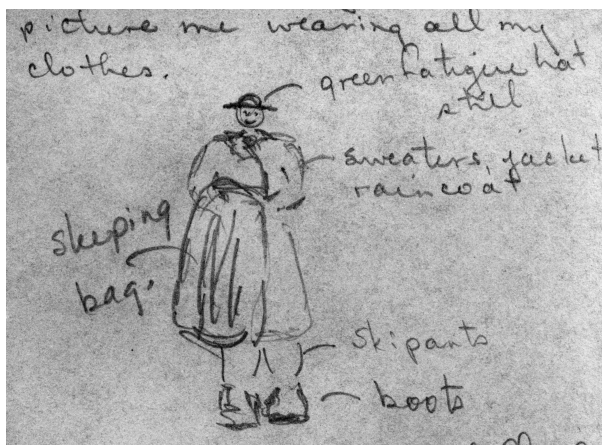 picture me wearing all my
clothes.
green fatigue hat
still
sweaters, jacket
raincoat
sleeping
bag.
ski pants
boots